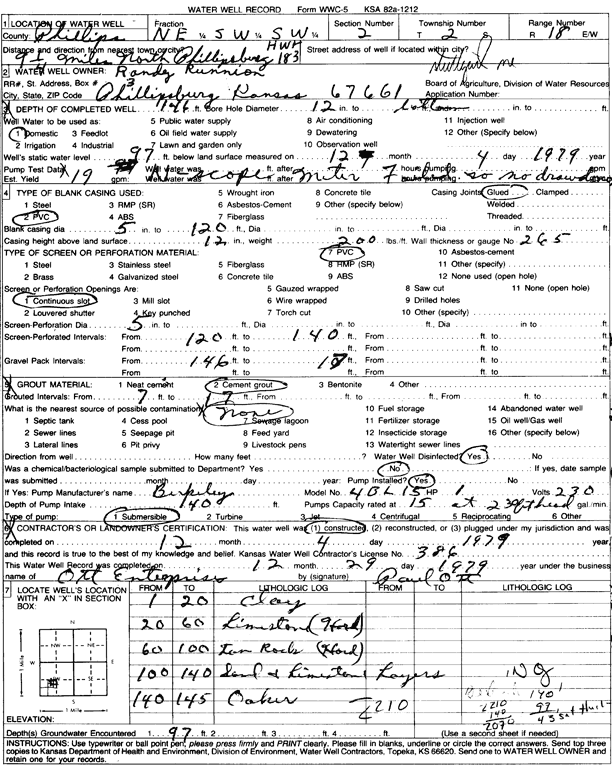 WATER WELL RECORD Form WWC-5 KSA 82a-1212
1 LOCATION OF WATER WELL Fraction Section Number Township Number Range Number
County Phillips NE ¼ SW ¼ SW ¼ 2 T 2 S R 18
Distance and direction from nearest town or city? Street address of well if located within city?
9½ miles North Phillipsburg Hwy 183
2 WATER WELL OWNER: Randy Runnion
RR#, St. Address, Box # Board of Agriculture, Division of Water Resources
City, State, ZIP Code Phillipsburg Kansas 67661 Application Number:
3 DEPTH OF COMPLETED WELL 146 ft. Bore Hole Diameter 12 in. to
Well Water to be used as: 5 Public water supply 8 Air conditioning 11 Injection well
1 Domestic 3 Feedlot 6 Oil field water supply 9 Dewatering 12 Other (Specify below)
2 Irrigation 4 Industrial 7 Lawn and garden only 10 Observation well
Well's static water level 97 ft. below land surface measured on 12 month 4 day 1979 year
Pump Test Data Well water was ft. after hours pumping
Est. Yield 19 Well water was scope ft. after meter hours pumping so no drawdown
4 TYPE OF BLANK CASING USED: 5 Wrought iron 8 Concrete tile Casing Joints: Glued Clamped
1 Steel 3 RMP (SR) 6 Asbestos-Cement 9 Other (specify below) Welded
2 PVC 4 ABS 7 Fiberglass Threaded
Blank casing dia 5 in. to 120 ft., Dia in. to ft., Dia in. to ft.
Casing height above land surface 12 in., weight 200 lbs./ft. Wall thickness or gauge No 265
TYPE OF SCREEN OR PERFORATION MATERIAL: 7 PVC 10 Asbestos-cement
1 Steel 3 Stainless steel 5 Fiberglass 8 RMP (SR) 11 Other (specify)
2 Brass 4 Galvanized steel 6 Concrete tile 9 ABS 12 None used (open hole)
Screen or Perforation Openings Are: 5 Gauzed wrapped 8 Saw cut 11 None (open hole)
1 Continuous slot 3 Mill slot 6 Wire wrapped 9 Drilled holes
2 Louvered shutter 4 Key punched 7 Torch cut 10 Other (specify)
Screen-Perforation Dia 5 in. to ft., Dia in. to ft., Dia in. to ft.
Screen-Perforated Intervals: From 120 ft. to 140 ft., From ft. to ft.
From ft. to ft., From ft. to ft.
Gravel Pack Intervals: From 146 ft. to ft., From ft. to ft.
From ft. to ft., From ft. to ft.
5 GROUT MATERIAL: 1 Neat cement 2 Cement grout 3 Bentonite 4 Other
Grouted Intervals: From 7 ft. to 17 ft., From ft. to ft., From ft. to ft.
What is the nearest source of possible contamination: None 10 Fuel storage 14 Abandoned water well
1 Septic tank 4 Cess pool 7 Sewage lagoon 11 Fertilizer storage 15 Oil well/Gas well
2 Sewer lines 5 Seepage pit 8 Feed yard 12 Insecticide storage 16 Other (specify below)
3 Lateral lines 6 Pit privy 9 Livestock pens 13 Watertight sewer lines
Direction from well How many feet ? Water Well Disinfected? Yes No
Was a chemical/bacteriological sample submitted to Department? Yes No If yes, date sample
was submitted month day year: Pump Installed? Yes No
If Yes: Pump Manufacturer's name Model No. HP 1 Volts 230
Depth of Pump Intake 140 ft. Pumps Capacity rated at 15 gal./min.
Type of pump: 1 Submersible 2 Turbine 3 Jet 4 Centrifugal 5 Reciprocating 6 Other
6 CONTRACTOR'S OR LANDOWNER'S CERTIFICATION: This water well was (1) constructed, (2) reconstructed, or (3) plugged under my jurisdiction and was
completed on 12 month 4 day 1979 year
and this record is true to the best of my knowledge and belief. Kansas Water Well Contractor's License No. 386
This Water Well Record was completed on 12 month 29 day 1979 year under the business
name of Ott Enterprises by (signature) Paul Ott
7 LOCATE WELL'S LOCATION WITH AN "X" IN SECTION BOX: FROM TO LITHOLOGIC LOG FROM TO LITHOLOGIC LOG
1 20 Clay
20 60 Limestone (Hard)
60 100 Tan Rock (Hard)
100 140 Sand & Limestone Layers
140 145 Oaker 2210
N
NW NE
W E
SW SE
S
1 Mile
ELEVATION:
Depth(s) Groundwater Encountered 1 97 ft. 2 ft. 3 ft. 4 ft. (Use a second sheet if needed)
INSTRUCTIONS: Use typewriter or ball point pen, please press firmly and PRINT clearly. Please fill in blanks, underline or circle the correct answers. Send top three copies to Kansas Department of Health and Environment, Division of Environment, Water Well Contractors, Topeka, KS 66620. Send one to WATER WELL OWNER and retain one for your records.